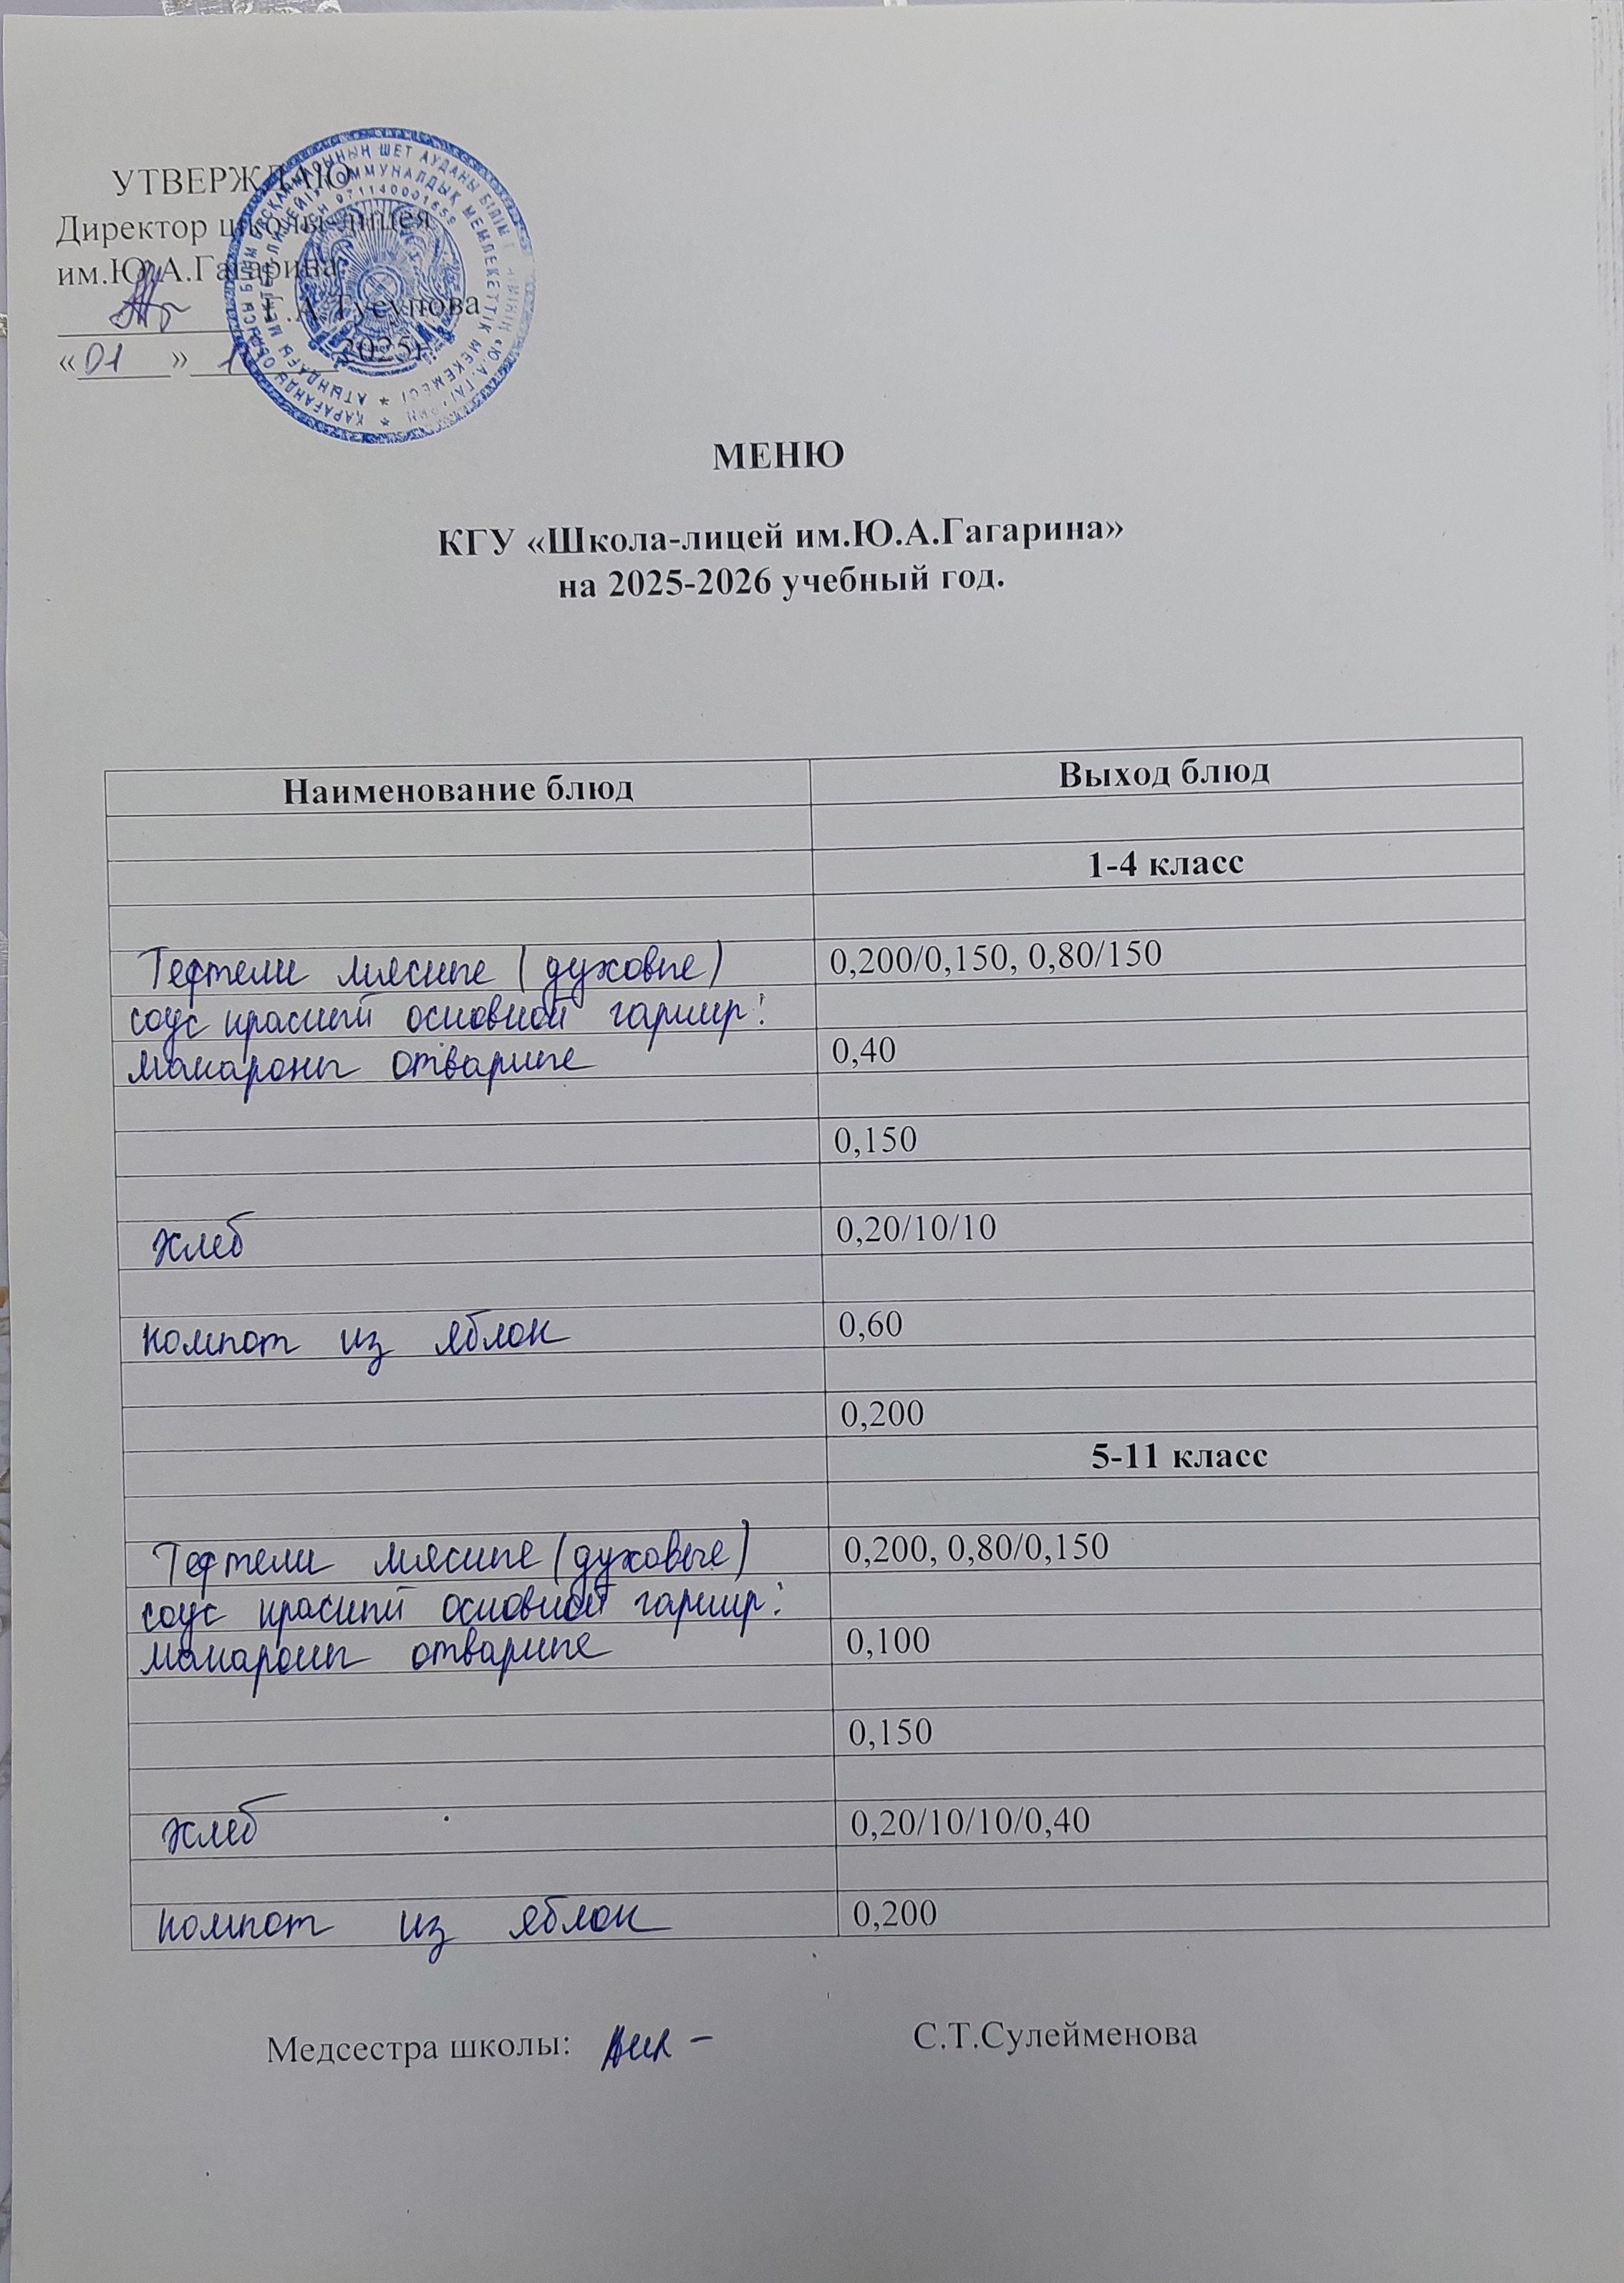 УТВЕРЖДАЮ
Директор школы-лицея
им.Ю.А.Гагарина
Г.А.Тусупова
«01» 2025г.
МЕНЮ
КГУ «Школа-лицей им.Ю.А.Гагарина»
на 2025-2026 учебный год.
Наименование блюд Выход блюд
1-4 класс
Тефтели мясные (духовые) 0,200/0,150, 0,80/150
соус красный основной гарнир:
макароны отварные 0,40
0,150
хлеб 0,20/10/10
компот из яблок 0,60
0,200
5-11 класс
Тефтели мясные (духовые) 0,200, 0,80/0,150
соус красный основной гарнир:
макароны отварные 0,100
0,150
хлеб 0,20/10/10/0,40
компот из яблок 0,200
Медсестра школы: С.Т.Сулейменова